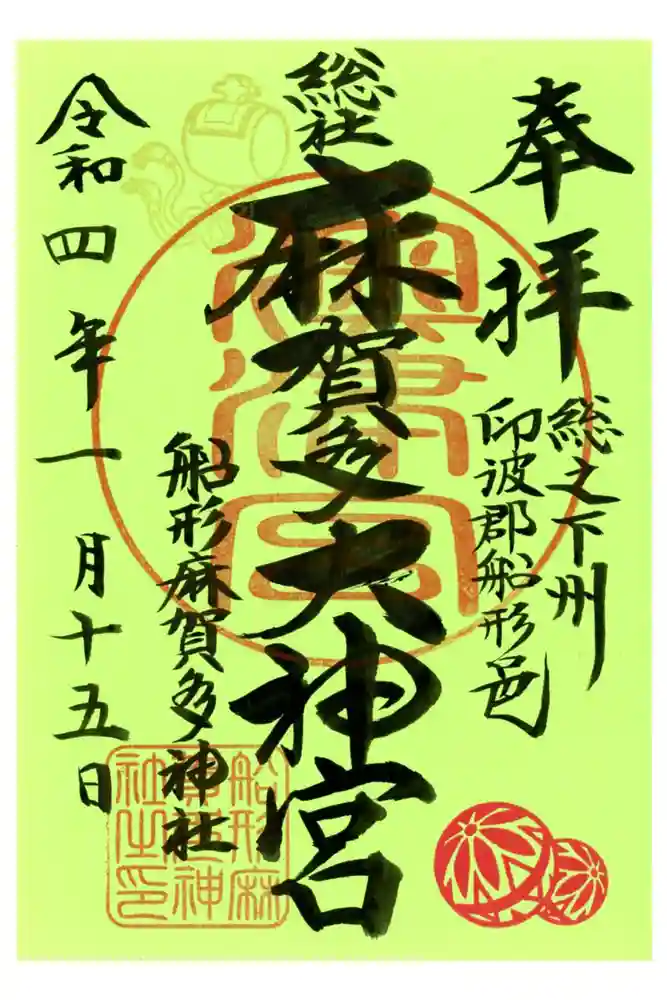 奉拝
総之下州
印波郡船形邑
総社
麻賀多大神宮
船形麻賀多神社
令和四年一月十五日
船形麻
賀多神
社之印